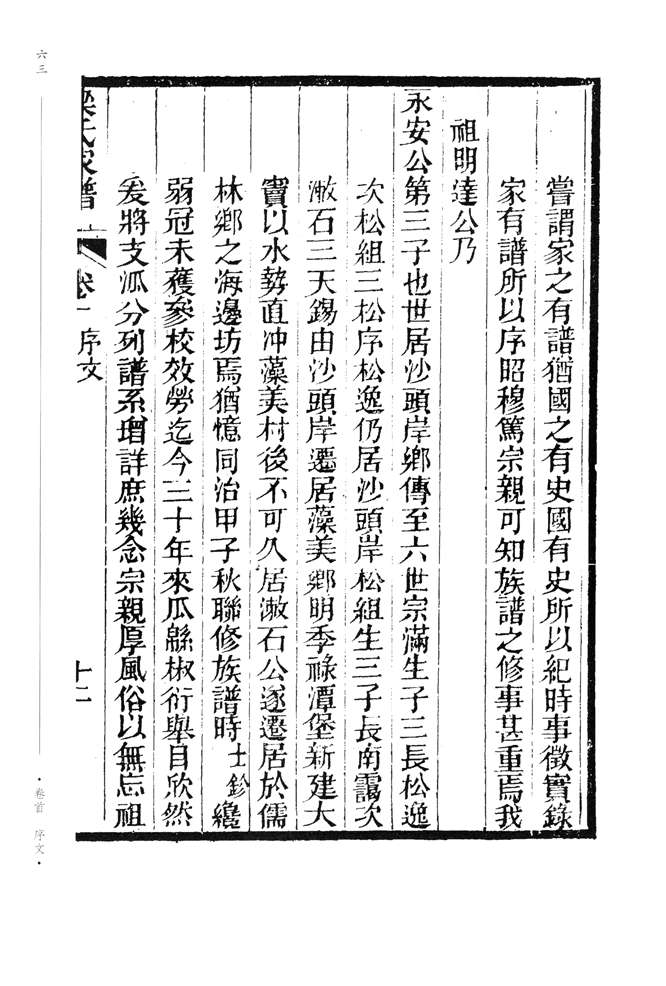 嘗謂家之有譜猶國之有史國有史所以紀時事徵實錄
家有譜所以序昭穆篤宗親可知族譜之修事甚重焉我
祖明達公乃
永安公第三子也世居沙頭岸鄉傳至六世宗滿生子三長松逸
次松組三松序松逸仍居沙頭岸松組生三子長南靄次
漖石三天錫由沙頭岸遷居藻美鄉明季祿潭堡新建大
竇以水勢直冲藻美村後不可久居漖石公遂遷居於儒
林鄉之海邊坊焉猶憶同治甲子秋聯修族譜時士鈐纔
弱冠未獲參校效勞迄今三十年來瓜緜椒衍舉目欣然
爰將支派分列譜系增詳庶幾念宗親厚風俗以無忘祖
梁氏家譜 卷一 序文 十二
六三
·卷首 序文·